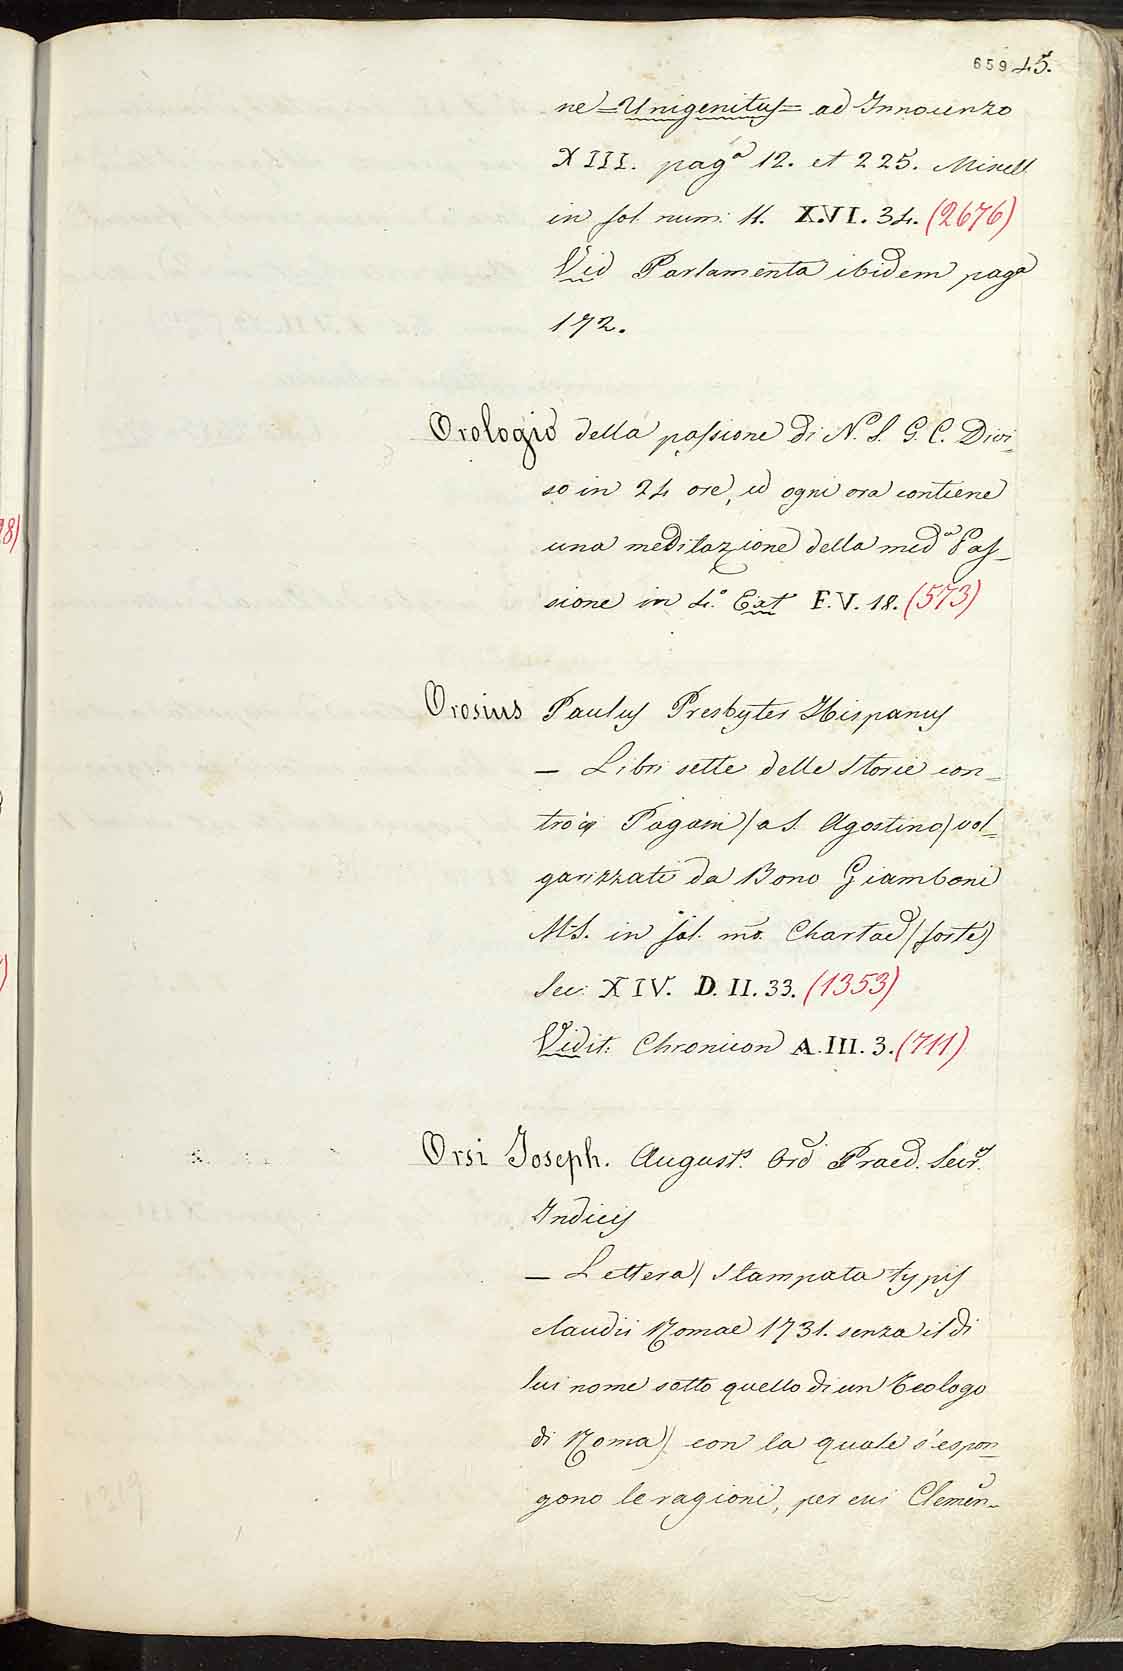 659 45.
ne = Unigenitus = ad Innocenzo
XIII. pag.ª 12. et 225. Miscell
in fol. num: 11. X.VI. 34. (2676)
Vid Parlamenta ibidem pagª
172.
Orologio della passione di N. S. G. C. Divi-
so in 24 ore, ed ogni ora contiene
una meditazione della medª Pas-
sione in 4.° Ext F.V. 18. (573)
Orosius Paulus Presbyter Hispanus
— Libri sette delle Storie con-
tro i Pagani / a S. Agostino / vol-
garizzati da Bono Giamboni
MS. in fol. mō. Chartac / forte)
Sec: XIV. D. II. 33. (1353)
Vidit: Chronicon A.III. 3. (711)
Orsi Joseph. August.s Ord Praed. Secr.
Indicis
— Lettera / stampata typis
claudii Romae 1731. senza il di
lui nome sotto quello di un Teologo
di Roma / con la quale s'espon-
gono le ragioni, per cui Clemen-